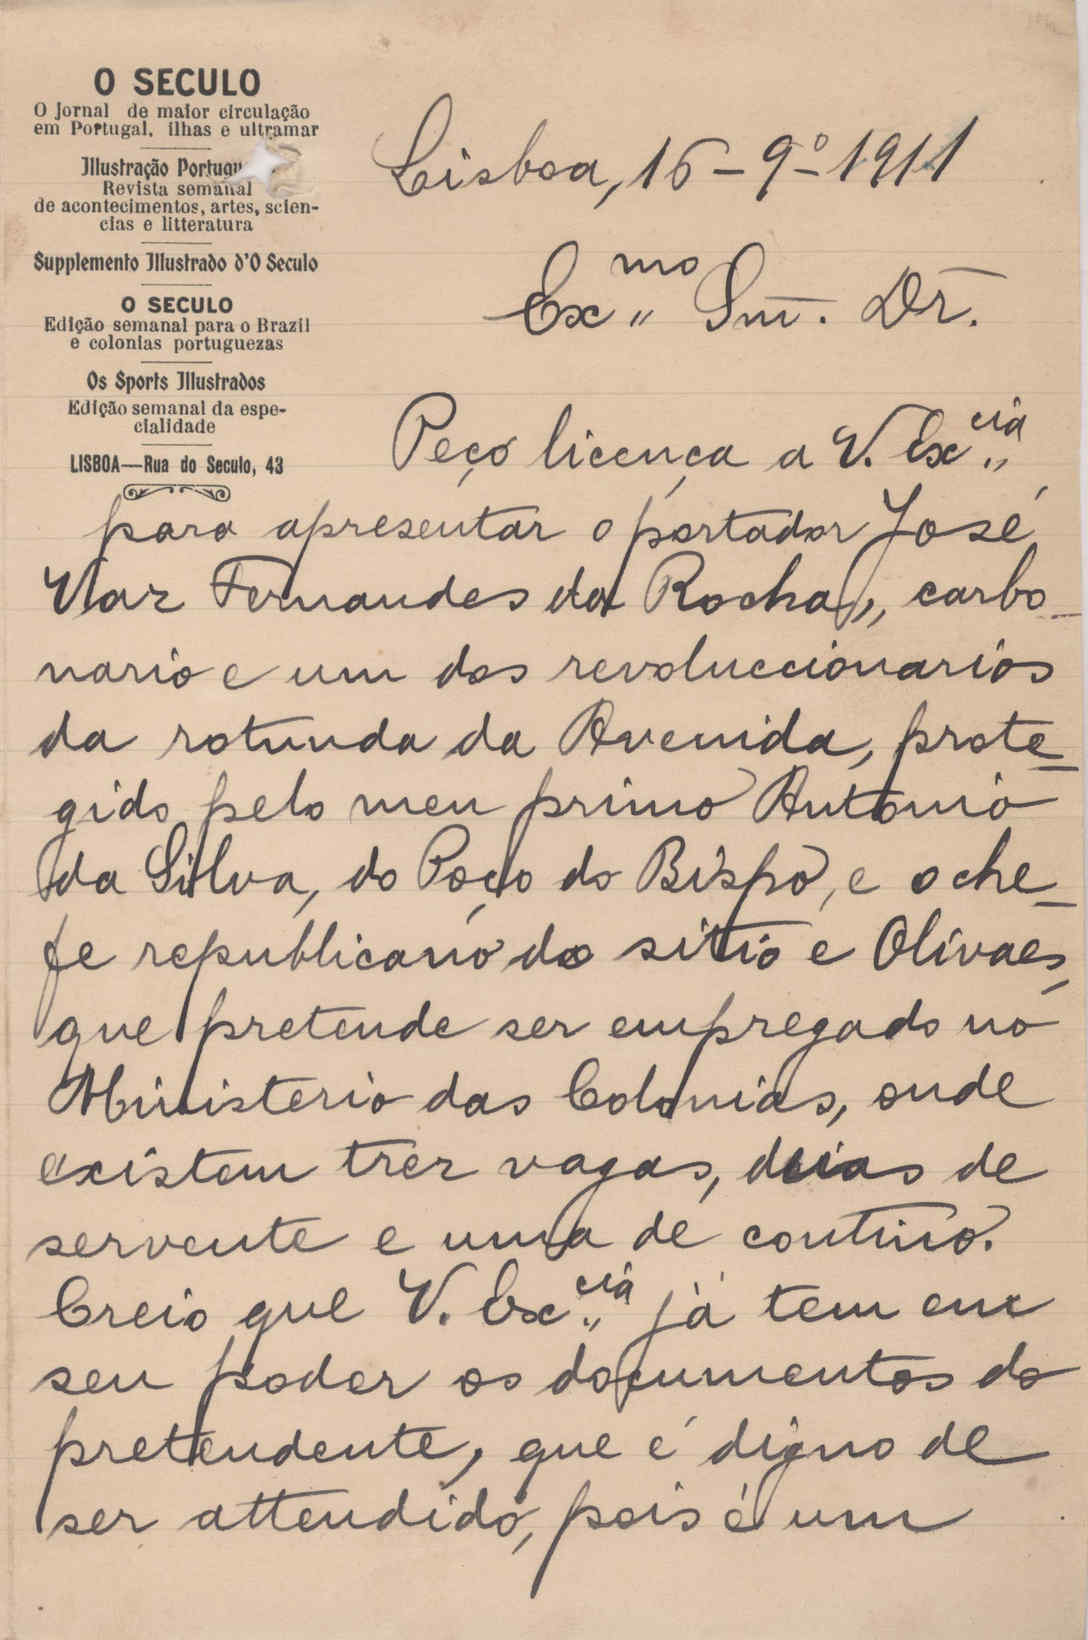 O SECULO
O Jornal de maior circulação
em Portugal, ilhas e ultramar
Illustração Portugu
Revista semanal
de acontecimentos, artes, scien-
cias e litteratura
Supplemento Illustrado d'O Seculo
O SECULO
Edição semanal para o Brazil
e colonias portuguezas
Os Sports Illustrados
Edição semanal da espe-
cialidade
LISBOA—Rua do Seculo, 43
Lisboa, 16-9º-1911
Exmo Snr. Dr.
Peço licença a V. Excia
para apresentar o portador José
Vaz Fernandes da Rocha, carbo-
nario e um dos revoluccionarios
da rotunda da Avenida, prote-
gido pelo meu primo Antonio
da Silva, do Poço do Bispo, e o che-
fe republicano do sitio e Olivaes,
que pretende ser empregado no
Ministerio das Colonias, onde
existem trez vagas, duas de
servente e uma de continuo.
Creio que V. Excia já tem em
seu poder os documentos do
pretendente, que é digno de
ser attendido, pois é um